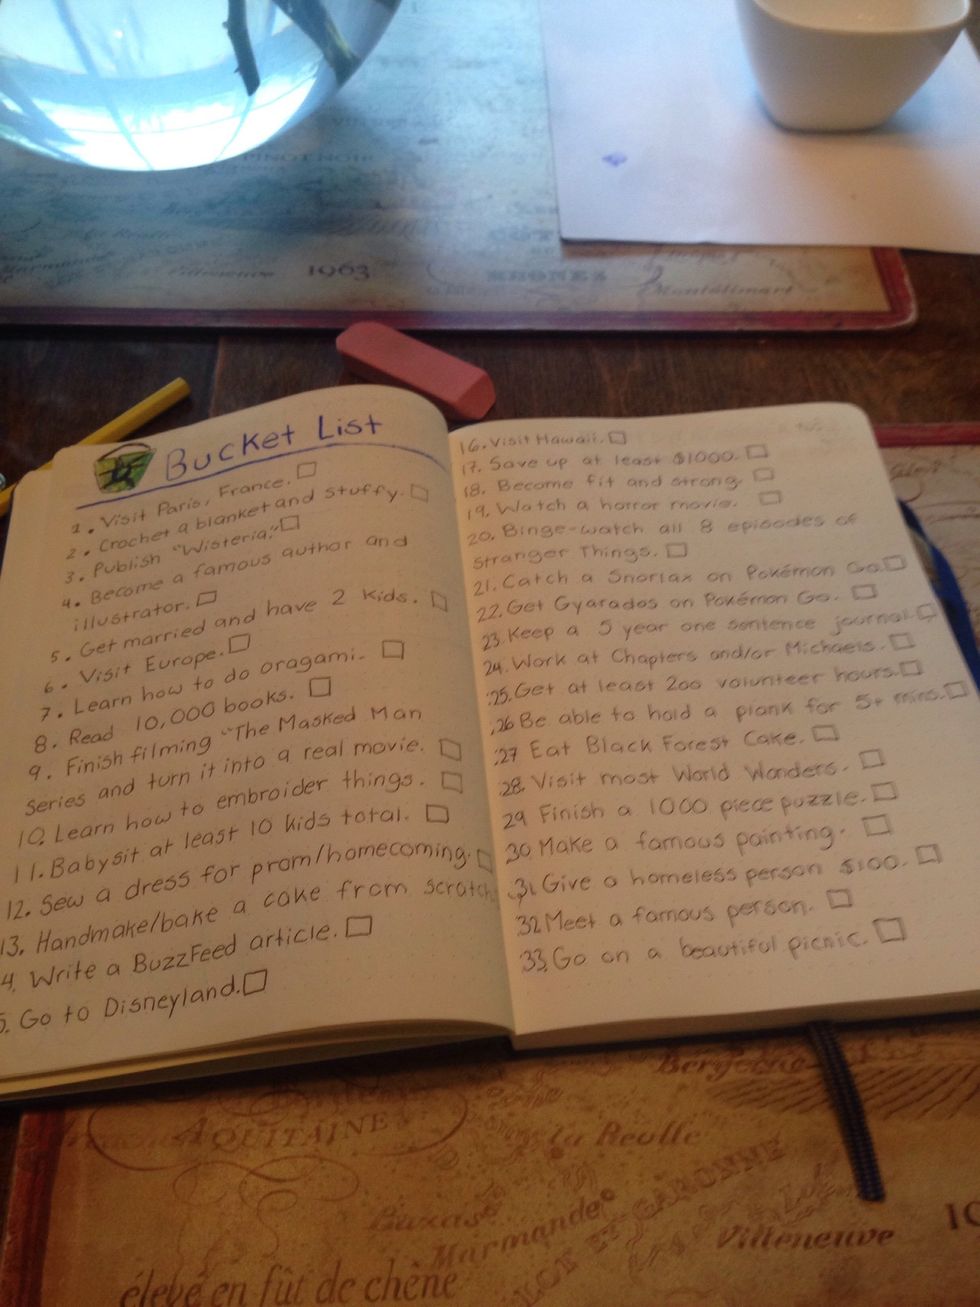 PINOT NOIR
1963
RHONEZ
Montélimart
Bucket List
1. Visit Paris, France.
2. Crochet a blanket and stuffy.
3. Publish "Wisteria."
4. Become a famous author and
illustrator.
5. Get married and have 2 kids.
6. Visit Europe.
7. Learn how to do oragami.
8. Read 10,000 books.
9. Finish filming "The Masked Man
series and turn it into a real movie.
10. Learn how to embroider things.
11. Babysit at least 10 kids total.
12. Sew a dress for prom/homecoming.
13. Handmake/bake a cake from scratch
4. Write a BuzzFeed article.
5. Go to Disneyland.
16. Visit Hawaii.
17. Save up at least $1000.
18. Become fit and strong.
19. Watch a horror movie.
20. Binge-watch all 8 episodes of
Stranger Things.
21. Catch a Snorlax on Pokémon Go.
22. Get Gyarados on Pokémon Go.
23. Keep a 5 year one sentence journal.
24. Work at Chapters and/or Michaels.
25. Get at least 200 volunteer hours.
26 Be able to hold a plank for 5+ mins.
27 Eat Black Forest Cake.
28. Visit most World Wonders.
29 Finish a 1000 piece puzzle.
30 Make a famous painting.
31 Give a homeless person $100.
32 Meet a famous person.
33. Go on a beautiful picnic.
AQUITAINE
la Reolle
Marmande
ET GARONNE
Villeneuve
élevé en fût de chêne